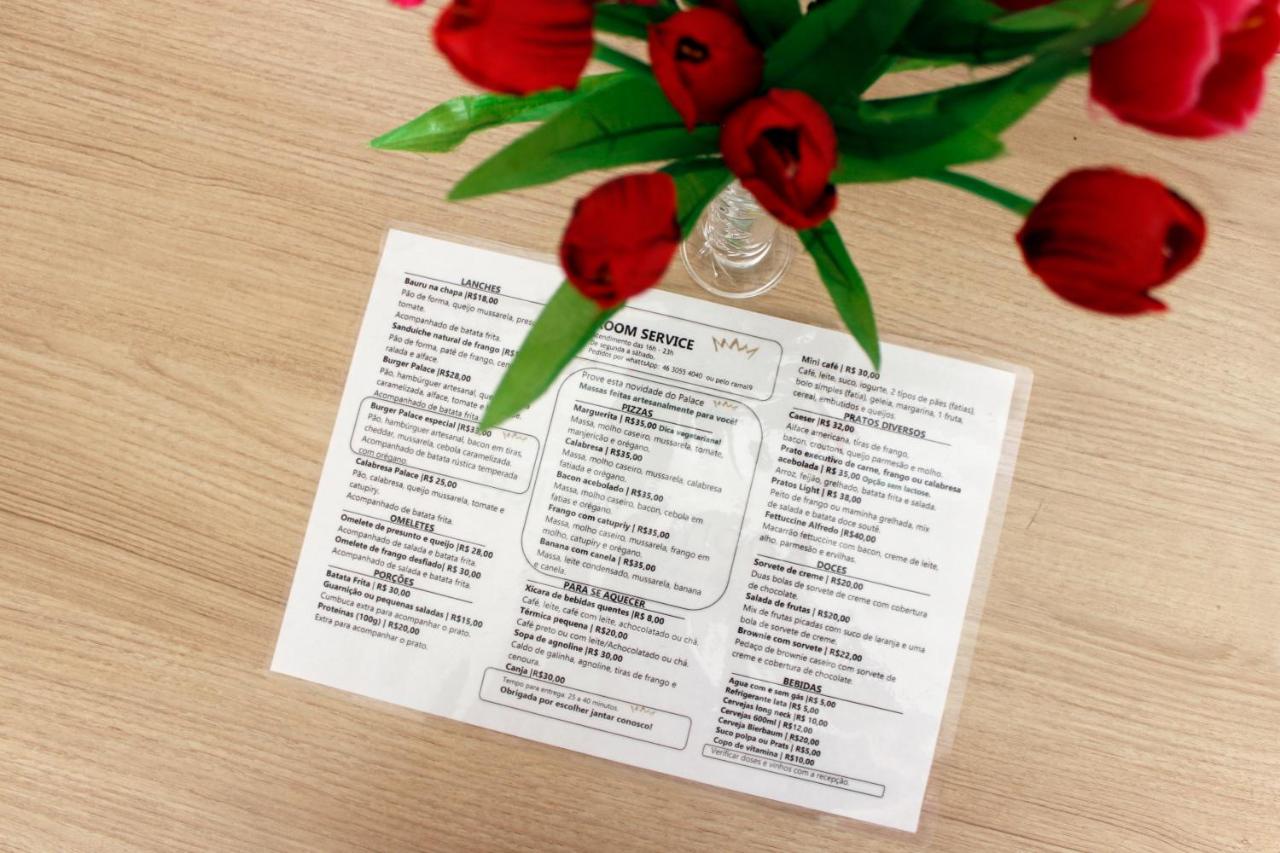 LANCHES
Bauru na chapa |R$18,00
Pão de forma, queijo mussarela,
tomate.
Acompanhado de batata frita.
Sanduiche natural de frango
Pão de forma, patê de frango,
ralada e alface.
Burger Palace |R$28,00
Pão, hambúrguer artesanal,
caramelizada, alface, tomate e
Acompanhado de batata frita.
Burger Palace especial
Pão, hambúrguer artesanal, bacon em tiras,
cheddar, mussarela, cebola caramelizada.
Acompanhado de batata rústica temperada
com orégano.
Calabresa Palace |R$ 25,00
Pão, calabresa, queijo mussarela, tomate e
catupiry.
Acompanhado de batata frita.
OMELETES
Omelete de presunto e queijo |R$ 28,00
Acompanhado de salada e batata frita.
Omelete de frango desfiado| R$ 30,00
Acompanhado de salada e batata frita.
PORÇÕES
Batata Frita | R$ 30,00
Guarnição ou pequenas saladas | R$15,00
Cumbuca extra para acompanhar o prato.
Proteínas (100g) | R$20,00
Extra para acompanhar o prato.
ROOM SERVICE
das 16h - 23h
De segunda a sábado.
Pedidos por whattsApp: 46 3055 4040 ou pelo ramal9
Prove esta novidade do Palace
Massas feitas artesanalmente para você!
PIZZAS
Marguerita | R$35,00 Dica vegetariana!
Massa, molho caseiro, mussarela, tomate,
manjericão e orégano.
Calabresa | R$35,00
Massa, molho caseiro, mussarela, calabresa
fatiada e orégano.
Bacon acebolado | R$35,00
Massa, molho caseiro, bacon, cebola em
fatias e orégano.
Frango com catupriy | R$35,00
Massa, molho caseiro, mussarela, frango em
molho, catupiry e orégano.
Banana com canela | R$35,00
Massa, leite condensado, mussarela, banana
e canela.
PARA SE AQUECER
Xícara de bebidas quentes |R$ 8,00
Café, leite, café com leite, achocolatado ou chá.
Térmica pequena | R$20,00
Café preto ou com leite/Achocolatado ou chá.
Sopa de agnoline |R$ 30,00
Caldo de galinha, agnoline, tiras de frango e
cenoura.
Canja |R$30,00
Tempo para entrega: 25 a 40 minutos.
Obrigada por escolher jantar conosco!
Mini café | R$ 30,00
Café, leite, suco, iogurte, 2 tipos de pães (fatias),
bolo simples (fatia), geleia, margarina, 1 fruta,
cereal, embutidos e queijos.
PRATOS DIVERSOS
Caeser |R$ 32,00
Alface americana, tiras de frango,
bacon, croutons, queijo parmesão e molho.
Prato executivo de carne, frango ou calabresa
acebolada | R$ 35,00 Opção sem lactose.
Arroz, feijão, grelhado, batata frita e salada.
Pratos Light | R$ 38,00
Peito de frango ou maminha grelhada, mix
de salada e batata doce souté.
Fettuccine Alfredo |R$40,00
Macarrão fettuccine com bacon, creme de leite,
alho, parmesão e ervilhas.
DOCES
Sorvete de creme | R$20,00
Duas bolas de sorvete de creme com cobertura
de chocolate.
Salada de frutas | R$20,00
Mix de frutas picadas com suco de laranja e uma
bola de sorvete de creme.
Brownie com sorvete | R$22,00
Pedaço de brownie caseiro com sorvete de
creme e cobertura de chocolate.
BEBIDAS
Agua com e sem gás |R$ 5,00
Refrigerante lata |R$ 5,00
Cervejas long neck |R$ 10,00
Cervejas 600ml | R$12,00
Cerveja Bierbaum | R$20,00
Suco polpa ou Prats | R$5,00
Copo de vitamina | R$10,00
Verificar doses e vinhos com a recepção.